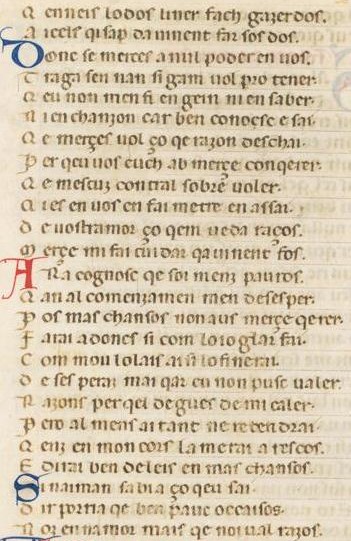 Q enneis lo dos liner fach gazerdos.
A icels qi sap da uinent far sos dos.
D onc se merces a nul poder en uos.
T raga sen nan si gam uol pro tener.
Q eu non men fi en gein ni en saber.
N i en chanzon car ben conosc e sai.
Q e merçes uol ço qe razon deschai.
P er qeu uos cuch ab merçe conqerer.
Q e mescuz contral sobre uoler.
Q ies en uos en fai metre en assai.
D e uostramor ço qem ueda raços.
M erçe mi fai cuidar qauinent fos.
A Ra cognosc qe soi menz pauros.
Q an al comenzamen men desesper.
P os mas chansos non aus merçe qerer.
F arai adoncs si com lo ioglar fai.
C om mou lo lais aisi lo finerai.
D esesperar mai qar eu non pusc ualer.
R azons per qel degues de mi caler.
P ero al mens aitant ne retendrai.
Q enz en mon cors la metai a rescos.
E dirai ben de leis en mas chansos.
S i naiman sabia ço qeu sai.
D ir poria qe ben pauc occaisos.
N or en namor mais qe noi ual razos.